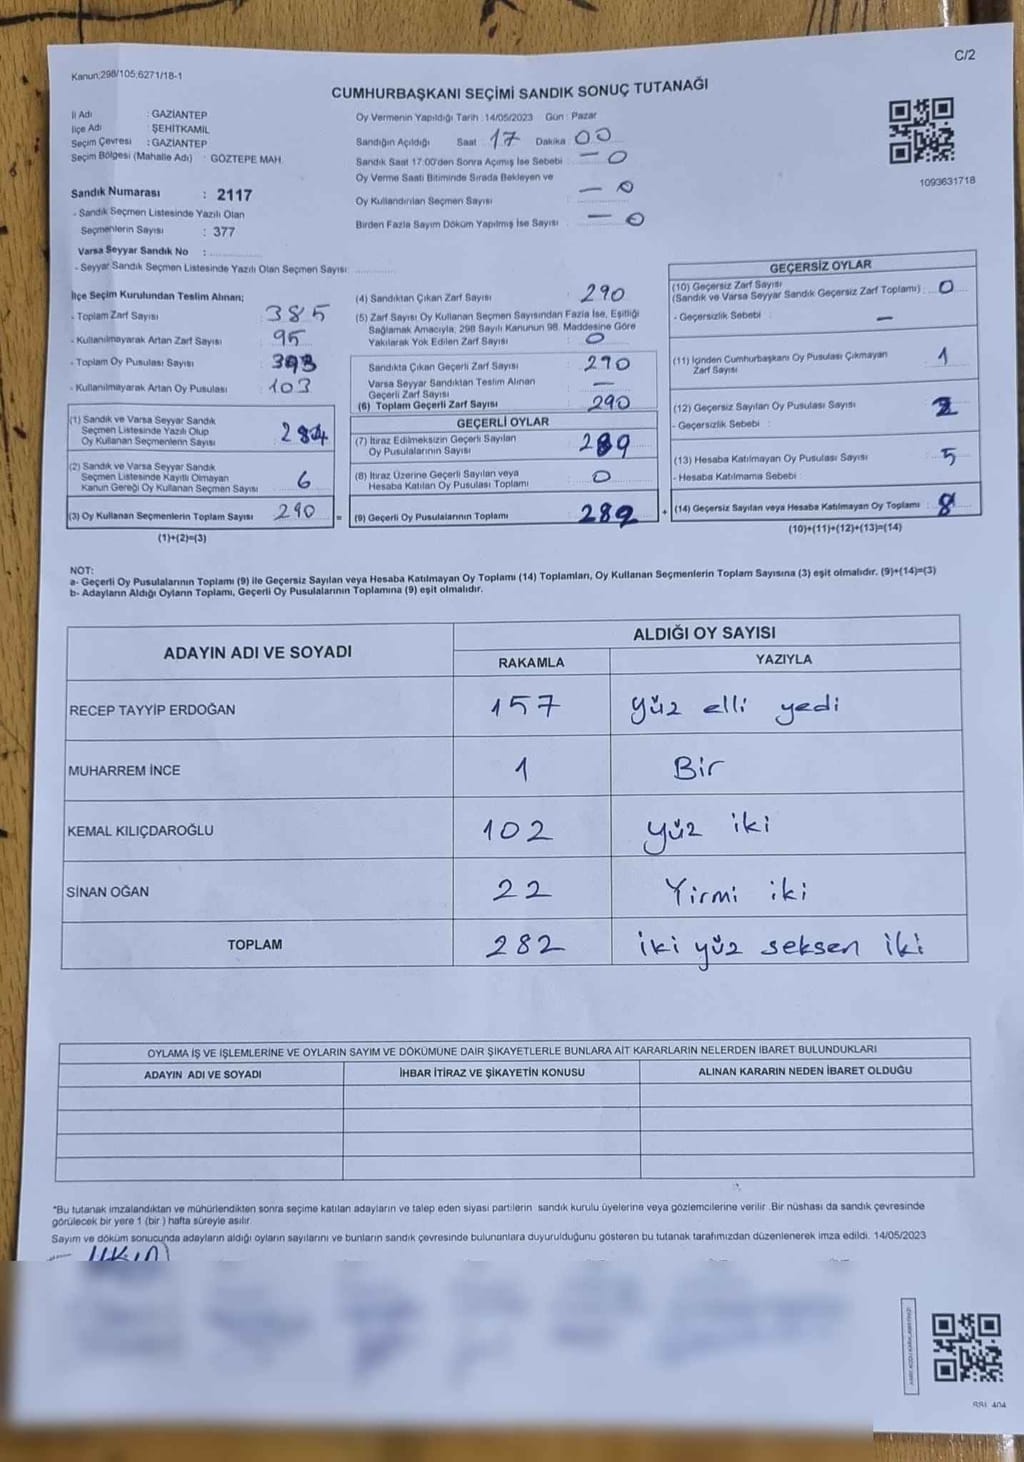 Kanun;298/105;6271/18-1
C/2
CUMHURBAŞKANI SEÇİMİ SANDIK SONUÇ TUTANAĞI
İl Adı : GAZİANTEP
İlçe Adı : ŞEHİTKAMİL
Seçim Çevresi : GAZİANTEP
Seçim Bölgesi (Mahalle Adı) : GÖZTEPE MAH.
Sandık Numarası : 2117
- Sandık Seçmen Listesinde Yazılı Olan
Seçmenlerin Sayısı : 377
Varsa Seyyar Sandık No :
- Seyyar Sandık Seçmen Listesinde Yazılı Olan Seçmen Sayısı:
Oy Vermenin Yapıldığı Tarih : 14/05/2023 Gün : Pazar
Sandığın Açıldığı Saat : 17 Dakika : 00
Sandık Saat 17:00'den Sonra Açımış İse Sebebi : — 0
Oy Verme Saati Bitiminde Sırada Bekleyen ve
Oy Kullandırılan Seçmen Sayısı : — 0
Birden Fazla Sayım Döküm Yapılmış İse Sayısı : — 0
1093631718
İlçe Seçim Kurulundan Teslim Alınan;
- Toplam Zarf Sayısı : 385
- Kullanılmayarak Artan Zarf Sayısı : 95
- Toplam Oy Pusulası Sayısı : 393
- Kullanılmayarak Artan Oy Pusulası : 103
(1) Sandık ve Varsa Seyyar Sandık
Seçmen Listesinde Yazılı Olup
Oy Kullanan Seçmenlerin Sayısı : 284
(2) Sandık ve Varsa Seyyar Sandık
Seçmen Listesinde Kayıtlı Olmayan
Kanun Gereği Oy Kullanan Seçmen Sayısı : 6
(3) Oy Kullanan Seçmenlerin Toplam Sayısı : 290 =
(1)+(2)=(3)
(4) Sandıktan Çıkan Zarf Sayısı : 290
(5) Zarf Sayısı Oy Kullanan Seçmen Sayısından Fazla İse, Eşitliği
Sağlamak Amacıyla, 298 Sayılı Kanunun 98. Maddesine Göre
Yakılarak Yok Edilen Zarf Sayısı : 0
Sandıkta Çıkan Geçerli Zarf Sayısı : 290
Varsa Seyyar Sandıktan Teslim Alınan
Geçerli Zarf Sayısı : —
(6) Toplam Geçerli Zarf Sayısı : 290
GEÇERLİ OYLAR
(7) İtiraz Edilmeksizin Geçerli Sayılan
Oy Pusulalarının Sayısı :
(8) İtiraz Üzerine Geçerli Sayılan veya
Hesaba Katılan Oy Pusulası Toplamı : 0
(9) Geçerli Oy Pusulalarının Toplamı : 282 +
GEÇERSİZ OYLAR
(10) Geçersiz Zarf Sayısı
(Sandık ve Varsa Seyyar Sandık Geçersiz Zarf Toplamı) : 0
- Geçersizlik Sebebi : —
(11) İçinden Cumhurbaşkanı Oy Pusulası Çıkmayan
Zarf Sayısı : 1
(12) Geçersiz Sayılan Oy Pusulası Sayısı : 2
- Geçersizlik Sebebi :
(13) Hesaba Katılmayan Oy Pusulası Sayısı : 5
- Hesaba Katılmama Sebebi :
(14) Geçersiz Sayılan veya Hesaba Katılmayan Oy Toplamı : 8
(10)+(11)+(12)+(13)=(14)
NOT:
a- Geçerli Oy Pusulalarının Toplamı (9) ile Geçersiz Sayılan veya Hesaba Katılmayan Oy Toplamı (14) Toplamları, Oy Kullanan Seçmenlerin Toplam Sayısına (3) eşit olmalıdır. (9)+(14)=(3)
b- Adayların Aldığı Oyların Toplamı, Geçerli Oy Pusulalarının Toplamına (9) eşit olmalıdır.
ADAYIN ADI VE SOYADI
ALDIĞI OY SAYISI
RAKAMLA YAZIYLA
RECEP TAYYİP ERDOĞAN 157 yüz elli yedi
MUHARREM İNCE 1 Bir
KEMAL KILIÇDAROĞLU 102 yüz iki
SİNAN OĞAN 22 Yirmi iki
TOPLAM 282 iki yüz seksen iki
OYLAMA İŞ VE İŞLEMLERİNE VE OYLARIN SAYIM VE DÖKÜMÜNE DAİR ŞİKAYETLERLE BUNLARA AİT KARARLARIN NELERDEN İBARET BULUNDUKLARI
ADAYIN ADI VE SOYADI İHBAR İTİRAZ VE ŞİKAYETİN KONUSU ALINAN KARARIN NEDEN İBARET OLDUĞU
*Bu tutanak imzalandıktan ve mühürlendikten sonra seçime katılan adayların ve talep eden siyasi partilerin sandık kurulu üyelerine veya gözlemcilerine verilir. Bir nüshası da sandık çevresinde
görülecek bir yere 1 (bir) hafta süreyle asılır.
Sayım ve döküm sonucunda adayların aldığı oyların sayılarını ve bunların sandık çevresinde bulunanlara duyurulduğunu gösteren bu tutanak tarafımızdan düzenlenerek imza edildi. 14/05/2023